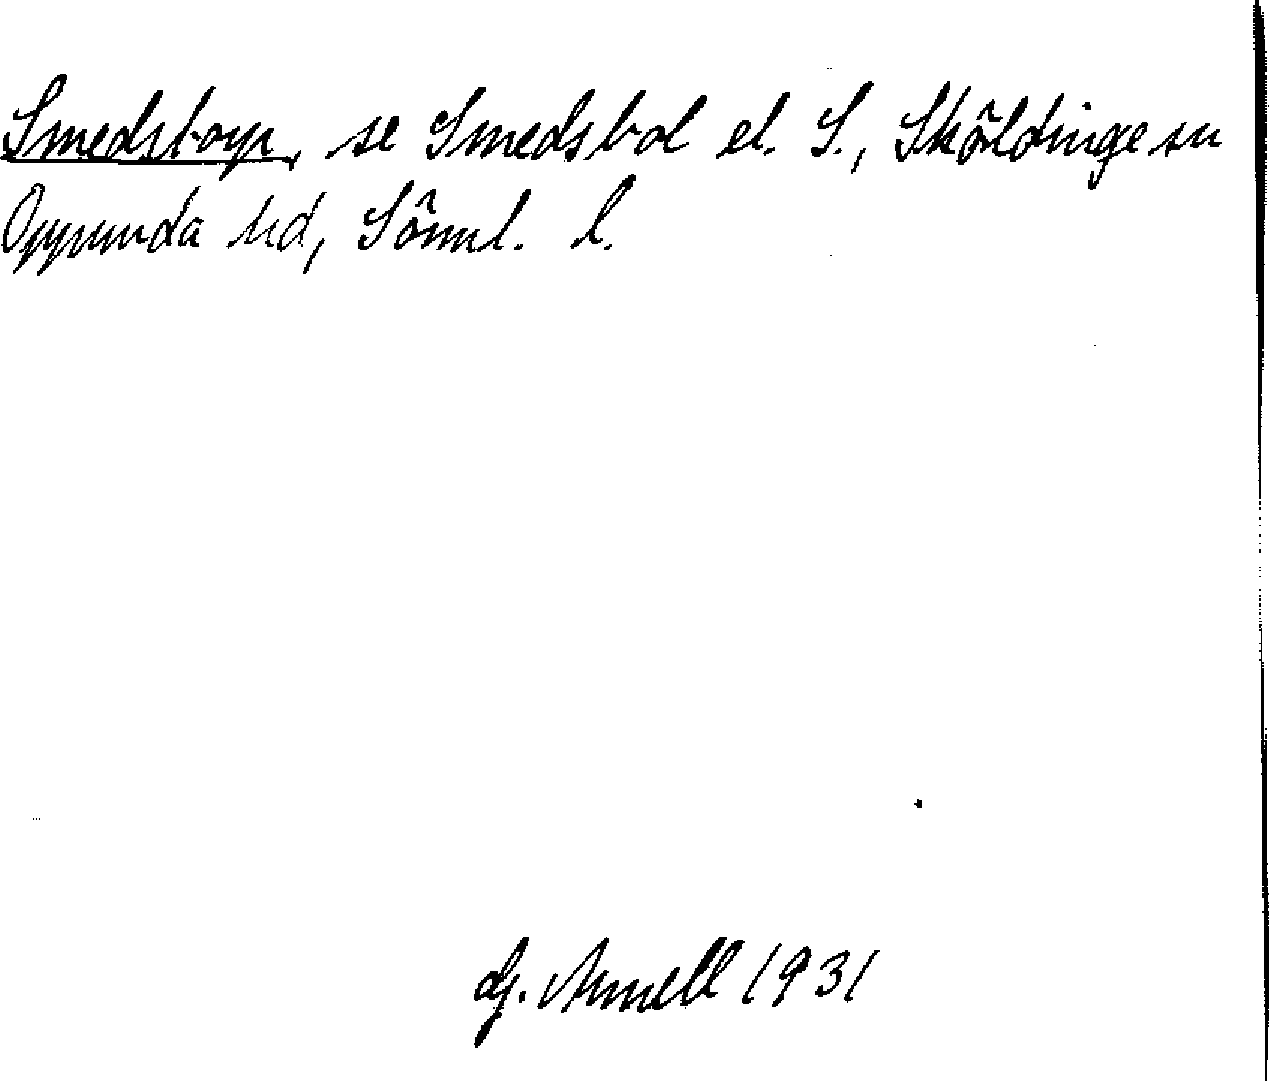 Smedstorp, se Smedsbol el. S., Sköldinge sn
Oppunda hd, Sörml. l.
G. Arnell 1931